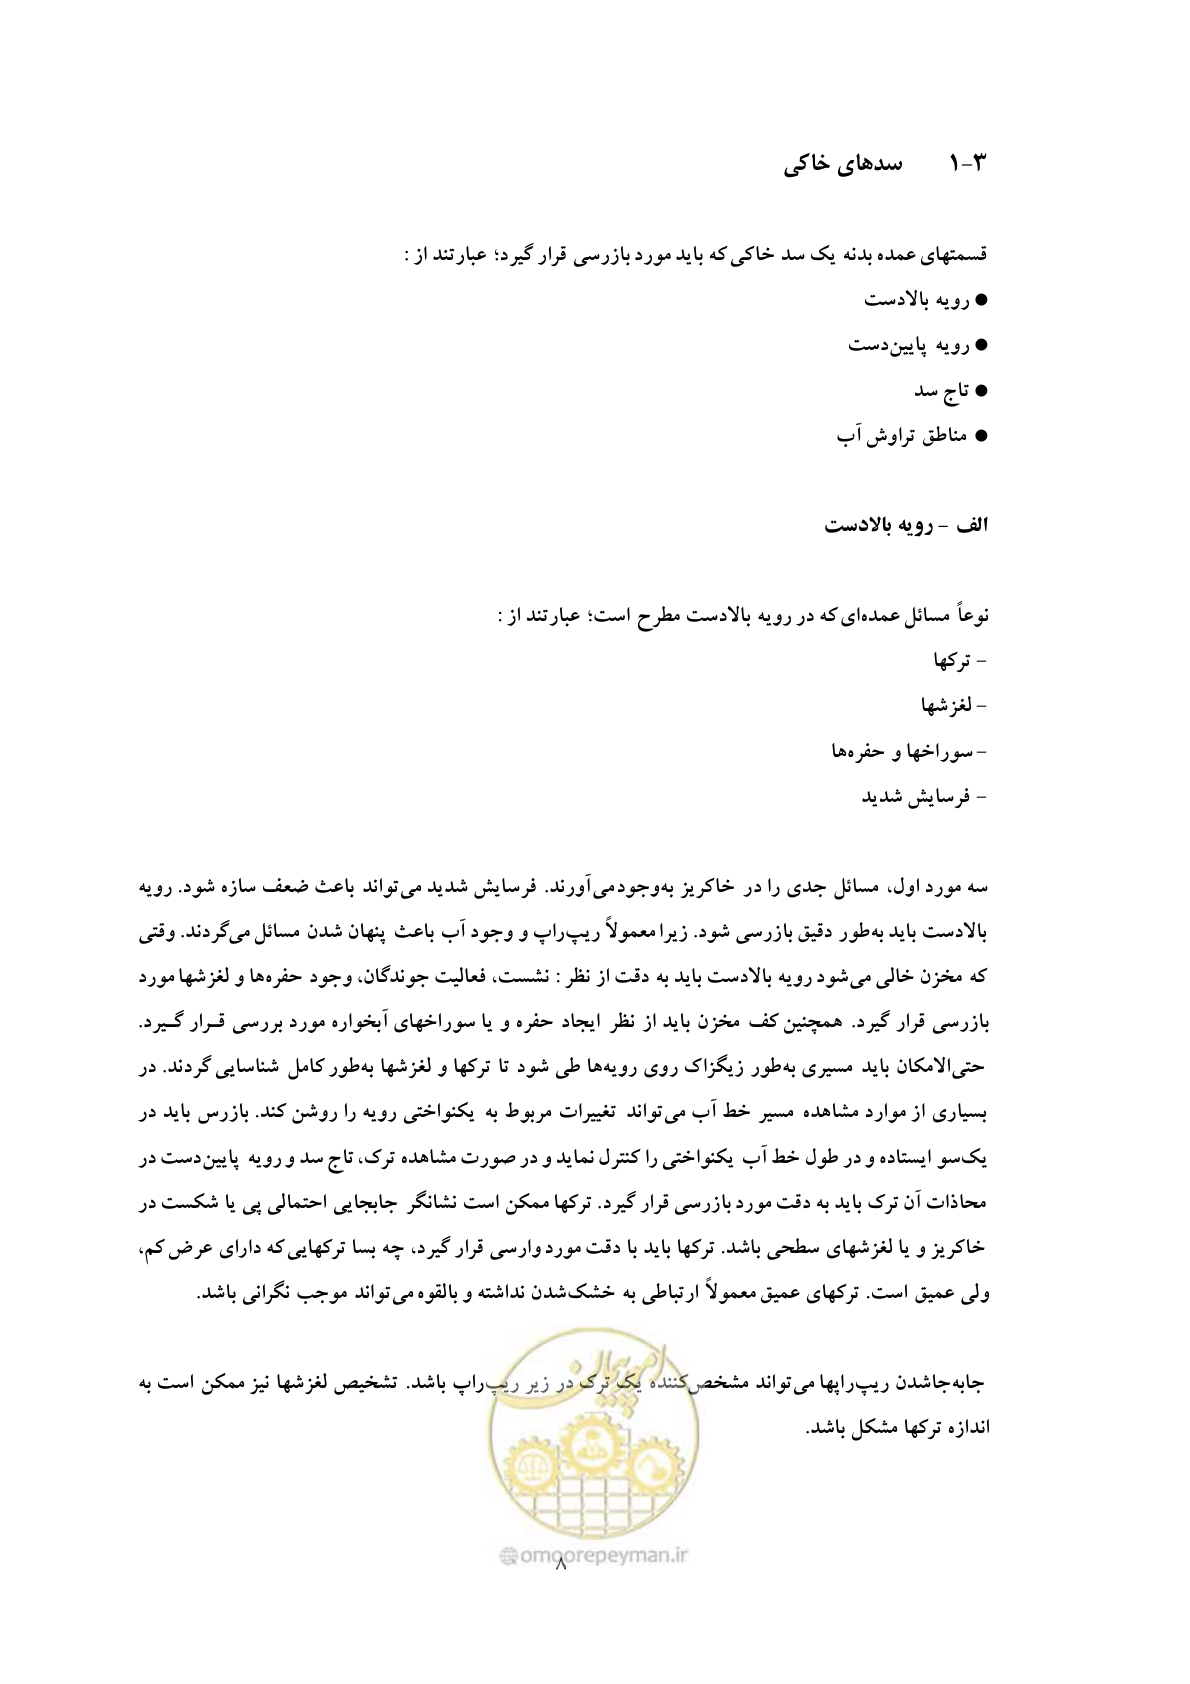 ۱-۳ سدهای خاکی
قسمتهای عمده بدنه یک سد خاکی که باید مورد بازرسی قرار گیرد؛ عبارتند از :
● رویه بالادست
● رویه پایین‌دست
● تاج سد
● مناطق تراوش آب
الف - رویه بالادست
نوعاً مسائل عمده‌ای که در رویه بالادست مطرح است؛ عبارتند از :
- ترکها
- لغزشها
- سوراخها و حفره‌ها
- فرسایش شدید
سه مورد اول، مسائل جدی را در خاکریز به‌وجود می‌آورند. فرسایش شدید می‌تواند باعث ضعف سازه شود. رویه
بالادست باید به‌طور دقیق بازرسی شود. زیرا معمولاً ریپ‌راپ و وجود آب باعث پنهان شدن مسائل می‌گردند. وقتی
که مخزن خالی می‌شود رویه بالادست باید به دقت از نظر : نشست، فعالیت جوندگان، وجود حفره‌ها و لغزشها مورد
بازرسی قرار گیرد. همچنین کف مخزن باید از نظر ایجاد حفره و یا سوراخهای آبخواره مورد بررسی قـرار گـیرد.
حتی‌الامکان باید مسیری به‌طور زیگزاک روی رویه‌ها طی شود تا ترکها و لغزشها به‌طور کامل شناسایی گردند. در
بسیاری از موارد مشاهده مسیر خط آب می‌تواند تغییرات مربوط به یکنواختی رویه را روشن کند. بازرس باید در
یک‌سو ایستاده و در طول خط آب یکنواختی را کنترل نماید و در صورت مشاهده ترک، تاج سد و رویه پایین‌دست در
محاذات آن ترک باید به دقت مورد بازرسی قرار گیرد. ترکها ممکن است نشانگر جابجایی احتمالی پی یا شکست در
خاکریز و یا لغزشهای سطحی باشد. ترکها باید با دقت مورد وارسی قرار گیرد، چه بسا ترکهایی که دارای عرض کم،
ولی عمیق است. ترکهای عمیق معمولاً ارتباطی به خشک‌شدن نداشته و بالقوه می‌تواند موجب نگرانی باشد.
جابه‌جاشدن ریپ‌راپها می‌تواند مشخص‌کننده یک ترک در زیر ریپ‌راپ باشد. تشخیص لغزشها نیز ممکن است به
اندازه ترکها مشکل باشد.
امور پیمان
@omoorepeyman.ir
۸